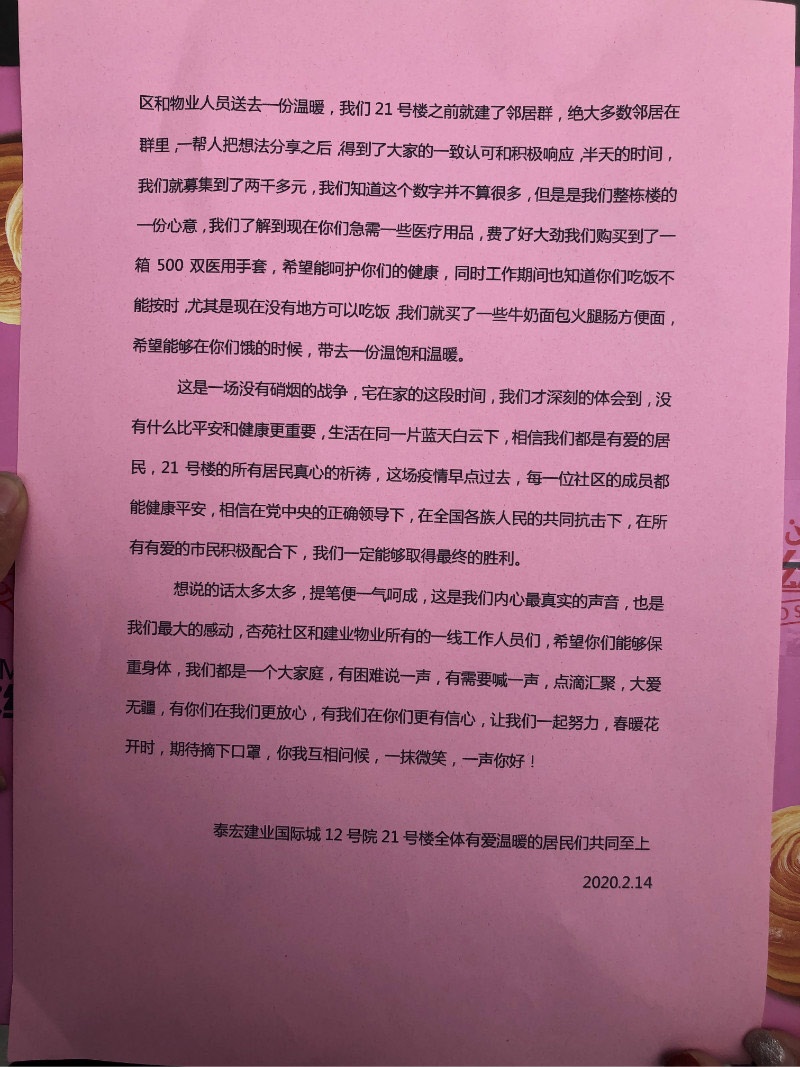 区和物业人员送去一份温暖，我们 21 号楼之前就建了邻居群，绝大多数邻居在
群里，一帮人把想法分享之后，得到了大家的一致认可和积极响应，半天的时间，
我们就募集到了两千多元，我们知道这个数字并不算很多，但是是我们整栋楼的
一份心意，我们了解到现在你们急需一些医疗用品，费了好大劲我们购买到了一
箱 500 双医用手套，希望能呵护你们的健康，同时工作期间也知道你们吃饭不
能按时，尤其是现在没有地方可以吃饭，我们就买了一些牛奶面包火腿肠方便面，
希望能够在你们饿的时候，带去一份温饱和温暖。
这是一场没有硝烟的战争，宅在家的这段时间，我们才深刻的体会到，没
有什么比平安和健康更重要，生活在同一片蓝天白云下，相信我们都是有爱的居
民，21 号楼的所有居民真心的祈祷，这场疫情早点过去，每一位社区的成员都
能健康平安，相信在党中央的正确领导下，在全国各族人民的共同抗击下，在所
有有爱的市民积极配合下，我们一定能够取得最终的胜利。
想说的话太多太多，提笔便一气呵成，这是我们内心最真实的声音，也是
我们最大的感动，杏苑社区和建业物业所有的一线工作人员们，希望你们能够保
重身体，我们都是一个大家庭，有困难说一声，有需要喊一声，点滴汇聚，大爱
无疆，有你们在我们更放心，有我们在你们更有信心，让我们一起努力，春暖花
开时，期待摘下口罩，你我互相问候，一抹微笑，一声你好！
泰宏建业国际城 12 号院 21 号楼全体有爱温暖的居民们共同至上
2020.2.14